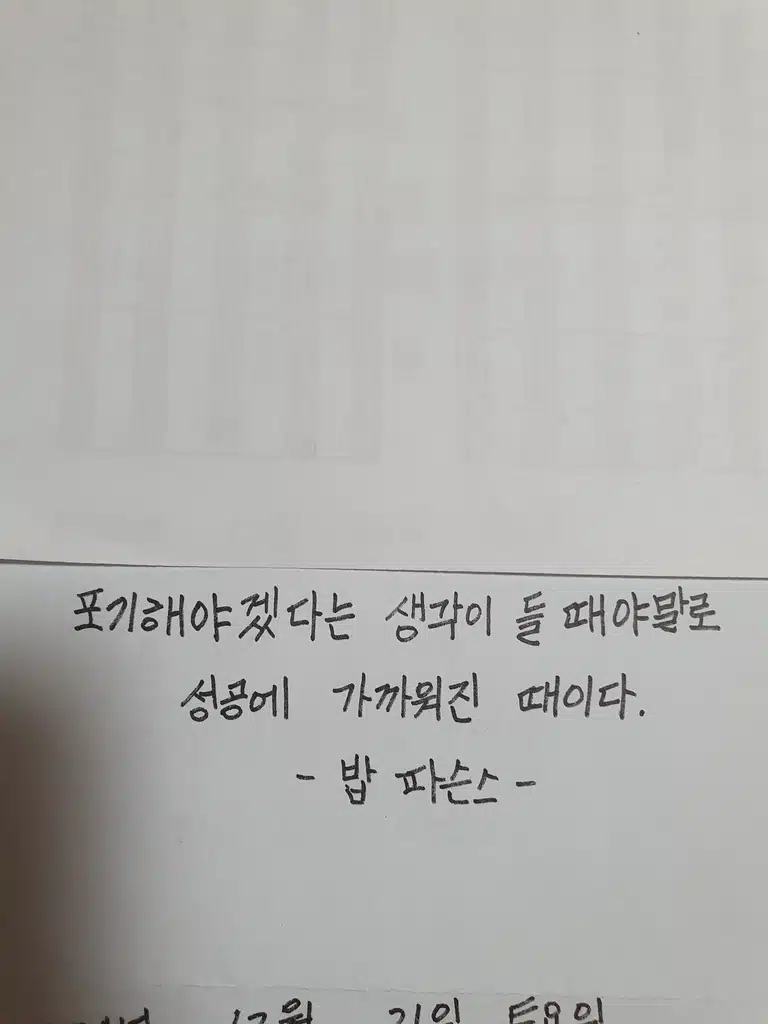 포기해야겠다는 생각이 들 때야말로
성공에 가까워진 때이다.
- 밥 파슨스 -
12월 21일 토요일